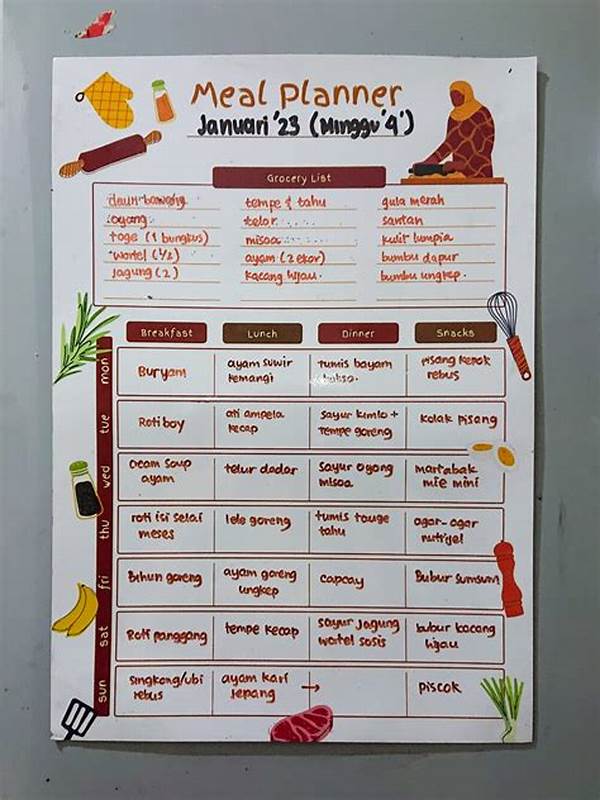 Meal Planner
Januari '23 (Minggu '4')
Grocery List
daun bawang tempe & tahu gula merah
oyong telor santan
toge (1 bungkus) misoa kulit lumpia
wortel (1/2) ayam (2 ekor) bumbu dapur
Jagung (2) kacang hijau. bumbu ungkep.
Breakfast Lunch Dinner Snacks
mon
Buryam
ayam suwir
kemangi
tumis bayam
bakso.
pisang kepok
rebus
tue
Roti boy
ati ampela
kecap
sayur kimlo +
tempe goreng
kolak pisang
wed
cream soup
ayam
telur dadar
sayur oyong
misoa
martabak
mie mini
thu
roti isi selai
meses
lele goreng
tumis tauge
tahu
agar-agar
nutrijel
fri
Bihun goreng
ayam goreng
ungkep
capcay
Bubur sumsum
sat
Roti panggang
tempe kecap
sayur jagung
wortel sosis
bubur kacang
hijau
sun
singkong/ubi
rebus
ayam kari
jepang →
piscok